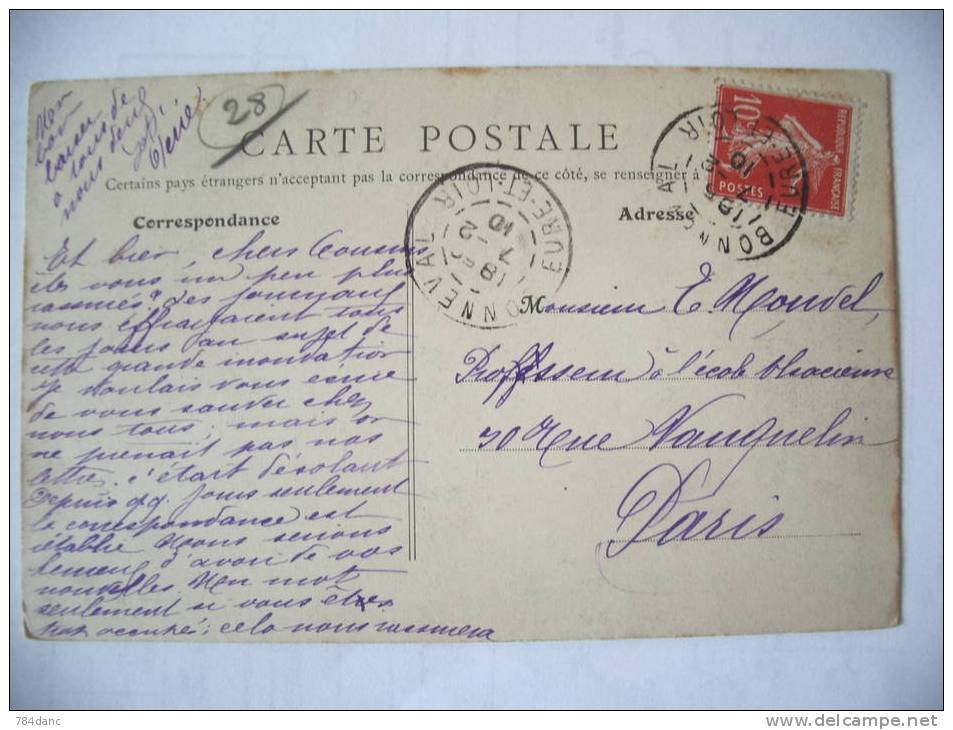 Mon
bon
baiser
à tous de
nous deux
28
CARTE POSTALE
Certains pays étrangers n'acceptant pas la correspondance de ce côté, se renseigner à
Correspondance
Adresse
10c
POSTES
REPUBLIQUE FRANÇAISE
BONNEVAL
EURE-ET-LOIR
BONNEVAL
EURE-ET-LOIR
Et bien, chers Cousins
êtes vous un peu plus
rassurés? des journaux
nous effrayaient tous
les jours au sujet de
cette grande inondation
Je voulais vous écrire
de vous sauver chez
nous tous; mais on
ne prenait pas nos
lettres. c'était désolant
Depuis qq. jours seulement
la correspondance est
établie Nous serions
d'avoir de vos
nouvelles. Un mot
seulement si vous êtes
trop occupés; cela nous rassurera
Monsieur E. Mondel,
Professeur à l'école
10 Rue Vauquelin
Paris
784danc
www.delcampe.net